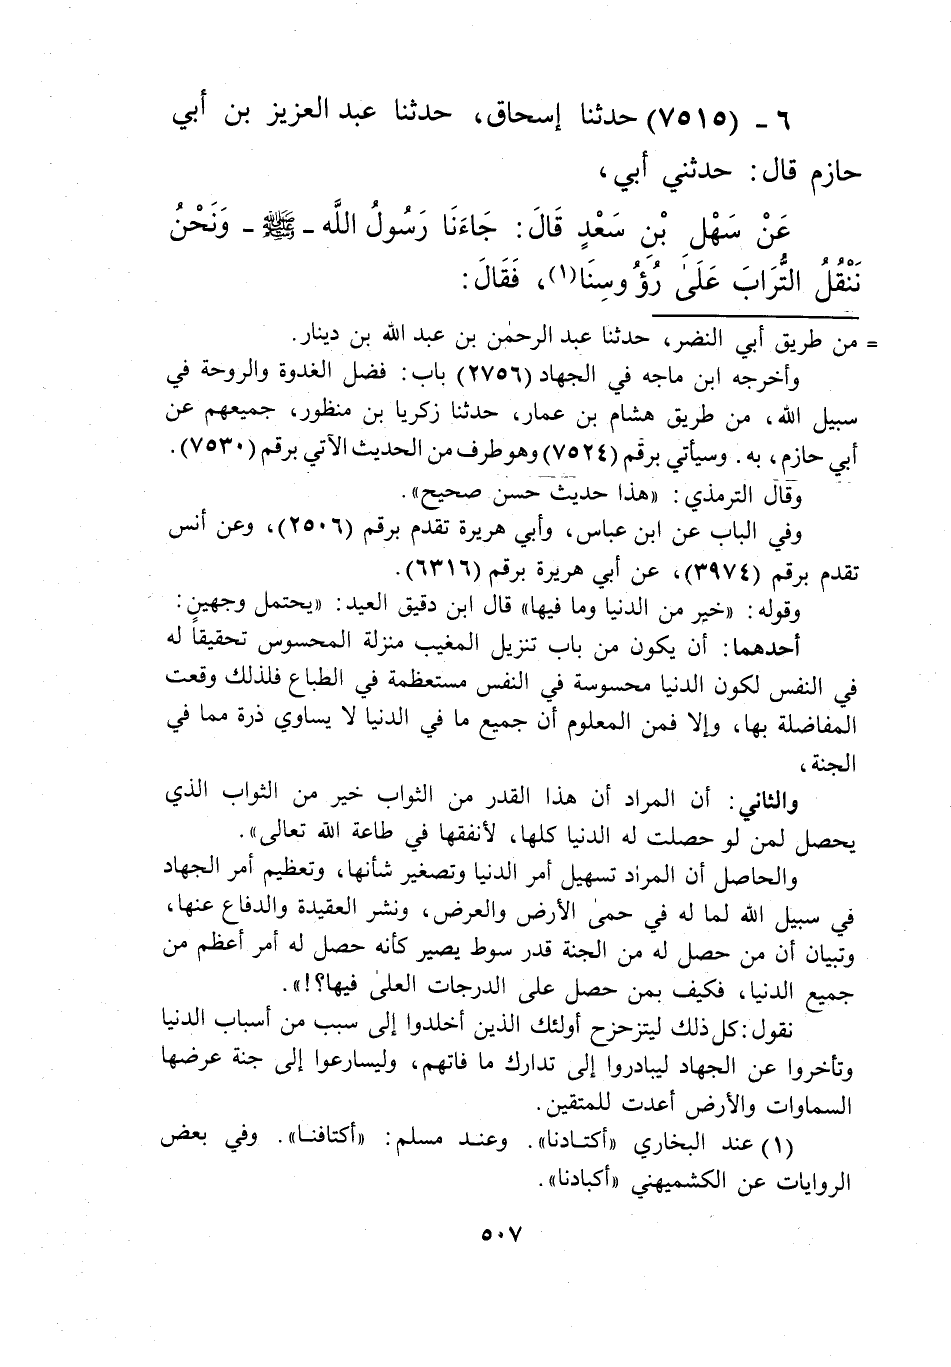 ٦ ـ (٧٥١٥) حدثنا إسحاق، حدثنا عبد العزيز بن أبي
حازم قال: حدثني أبي،
عَنْ سَهْلِ بْنِ سَعْدٍ قَالَ: جَاءَنَا رَسُولُ اللَّه ـ ﷺ ـ وَنَحْنُ
نَنْقُلُ التُّرَابَ عَلَىٰ رُؤُوسِنَا(١)، فَقَالَ:
= من طريق أبي النضر، حدثنا عبد الرحمٰن بن عبد الله بن دينار.
وأخرجه ابن ماجه في الجهاد (٢٧٥٦) باب: فضل الغدوة والروحة في
سبيل الله، من طريق هشام بن عمار، حدثنا زكريا بن منظور، جميعهم عن
أبي حازم، به. وسيأتي برقم (٧٥٢٤) وهو طرف من الحديث الآتي برقم (٧٥٣٠).
وقال الترمذي: «هذا حديث حسن صحيح».
وفي الباب عن ابن عباس، وأبي هريرة تقدم برقم (٢٥٠٦)، وعن أنس
تقدم برقم (٣٩٧٤)، عن أبي هريرة برقم (٦٣١٦).
وقوله: «خير من الدنيا وما فيها» قال ابن دقيق العيد: «يحتمل وجهين:
أحدهما: أن يكون من باب تنزيل المغيب منزلة المحسوس تحقيقاً له
في النفس لكون الدنيا محسوسة في النفس مستعظمة في الطباع فلذلك وقعت
المفاضلة بها، وإلا فمن المعلوم أن جميع ما في الدنيا لا يساوي ذرة مما في
الجنة،
والثاني: أن المراد أن هذا القدر من الثواب خير من الثواب الذي
يحصل لمن لو حصلت له الدنيا كلها، لأنفقها في طاعة الله تعالى».
والحاصل أن المراد تسهيل أمر الدنيا وتصغير شأنها، وتعظيم أمر الجهاد
في سبيل الله لما له في حمىٰ الأرض والعرض، ونشر العقيدة والدفاع عنها،
وتبيان أن من حصل له من الجنة قدر سوط يصير كأنه حصل له أمر أعظم من
جميع الدنيا، فكيف بمن حصل على الدرجات العلىٰ فيها؟!».
نقول: كل ذلك ليتزحزح أولئك الذين أخلدوا إلى سبب من أسباب الدنيا
وتأخروا عن الجهاد ليبادروا إلى تدارك ما فاتهم، وليسارعوا إلى جنة عرضها
السماوات والأرض أعدت للمتقين.
(١) عند البخاري «أكتادنا». وعند مسلم: «أكتافنا». وفي بعض
الروايات عن الكشميهني «أكبادنا».
٥٠٧